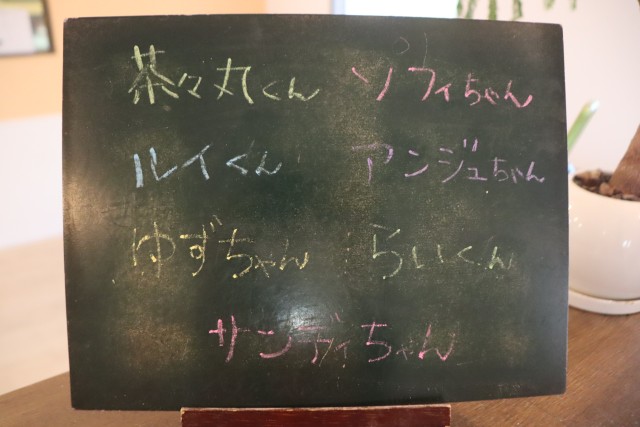 茶々丸くん ソフィちゃん
ルイくん アンジュちゃん
ゆずちゃん らいくん
サンディちゃん